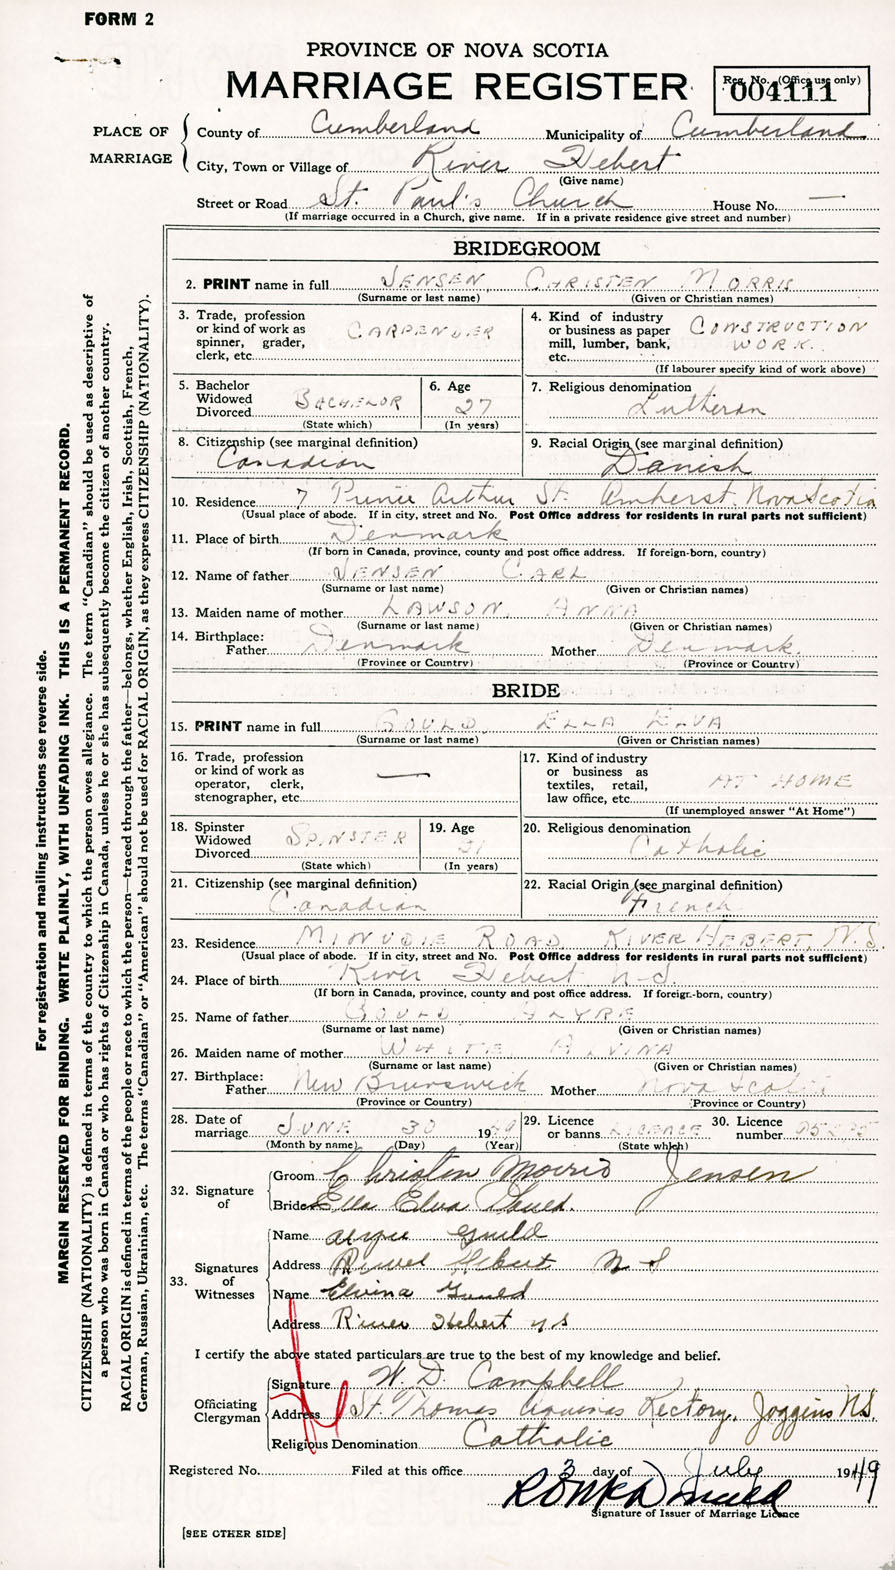 FORM 2
PROVINCE OF NOVA SCOTIA
MARRIAGE REGISTER
Reg. No. (Office use only)
004111
PLACE OF MARRIAGE
County of Cumberland Municipality of Cumberland
City, Town or Village of River Hebert
(Give name)
Street or Road St. Paul's Church House No. —
(If marriage occurred in a Church, give name. If in a private residence give street and number)
BRIDEGROOM
2. PRINT name in full JENSEN, CHRISTEN MORRIS
(Surname or last name) (Given or Christian names)
3. Trade, profession or kind of work as spinner, grader, clerk, etc. CARPENDER
4. Kind of industry or business as paper mill, lumber, bank, etc. CONSTRUCTION WORK.
(If labourer specify kind of work above)
5. Bachelor Widowed Divorced BACHELOR
(State which)
6. Age 27
(In years)
7. Religious denomination Lutheran
8. Citizenship (see marginal definition) Canadian
9. Racial Origin (see marginal definition) Danish
10. Residence 7 Prince Arthur St. Amherst, Nova Scotia
(Usual place of abode. If in city, street and No. Post Office address for residents in rural parts not sufficient)
11. Place of birth Denmark
(If born in Canada, province, county and post office address. If foreign-born, country)
12. Name of father JENSEN CARL
(Surname or last name) (Given or Christian names)
13. Maiden name of mother LAWSON, ANNA
(Surname or last name) (Given or Christian names)
14. Birthplace: Father Denmark Mother Denmark.
(Province or Country) (Province or Country)
BRIDE
15. PRINT name in full GOULD ELLA ELVA
(Surname or last name) (Given or Christian names)
16. Trade, profession or kind of work as operator, clerk, stenographer, etc. —
17. Kind of industry or business as textiles, retail, law office, etc. AT HOME
(If unemployed answer "At Home")
18. Spinster Widowed Divorced SPINSTER
(State which)
19. Age 21
(In years)
20. Religious denomination Catholic
21. Citizenship (see marginal definition) Canadian
22. Racial Origin (see marginal definition) French
23. Residence MINUDIE ROAD, RIVER HEBERT, N.S.
(Usual place of abode. If in city, street and No. Post Office address for residents in rural parts not sufficient)
24. Place of birth River Hebert N-S.
(If born in Canada, province, county and post office address. If foreign-born, country)
25. Name of father GOULD ALYRE
(Surname or last name) (Given or Christian names)
26. Maiden name of mother WHITE ALVINA
(Surname or last name) (Given or Christian names)
27. Birthplace: Father New Brunswick Mother Nova Scotia
(Province or Country) (Province or Country)
28. Date of marriage JUNE 30 1949
(Month by name) (Day) (Year)
29. Licence or banns LICENCE
(State which)
30. Licence number
32. Signature of
Groom Christen Morris Jensen
Bride Ella Elva Gould.
33. Signatures of Witnesses
Name
Address River Hebert N S
Name Elvina
Address River Hebert N S
I certify the above stated particulars are true to the best of my knowledge and belief.
Officiating Clergyman
Signature W. D. Campbell
Address St. Thomas Aquinas Rectory, Joggins N.S.
Religious Denomination Catholic
Registered No. Filed at this office 3 day of July 1949
Signature of Issuer of Marriage Licence
[SEE OTHER SIDE]
For registration and mailing instructions see reverse side.
MARGIN RESERVED FOR BINDING. WRITE PLAINLY, WITH UNFADING INK. THIS IS A PERMANENT RECORD.
CITIZENSHIP (NATIONALITY) is defined in terms of the country to which the person owes allegiance. The term "Canadian" should be used as descriptive of
a person who was born in Canada or who has rights of Citizenship in Canada, unless he or she has subsequently become the citizen of another country.
RACIAL ORIGIN is defined in terms of the people or race to which the person—traced through the father—belongs, whether English, Irish, Scottish, French,
German, Russian, Ukrainian, etc. The terms "Canadian" or "American" should not be used for RACIAL ORIGIN, as they express CITIZENSHIP (NATIONALITY).